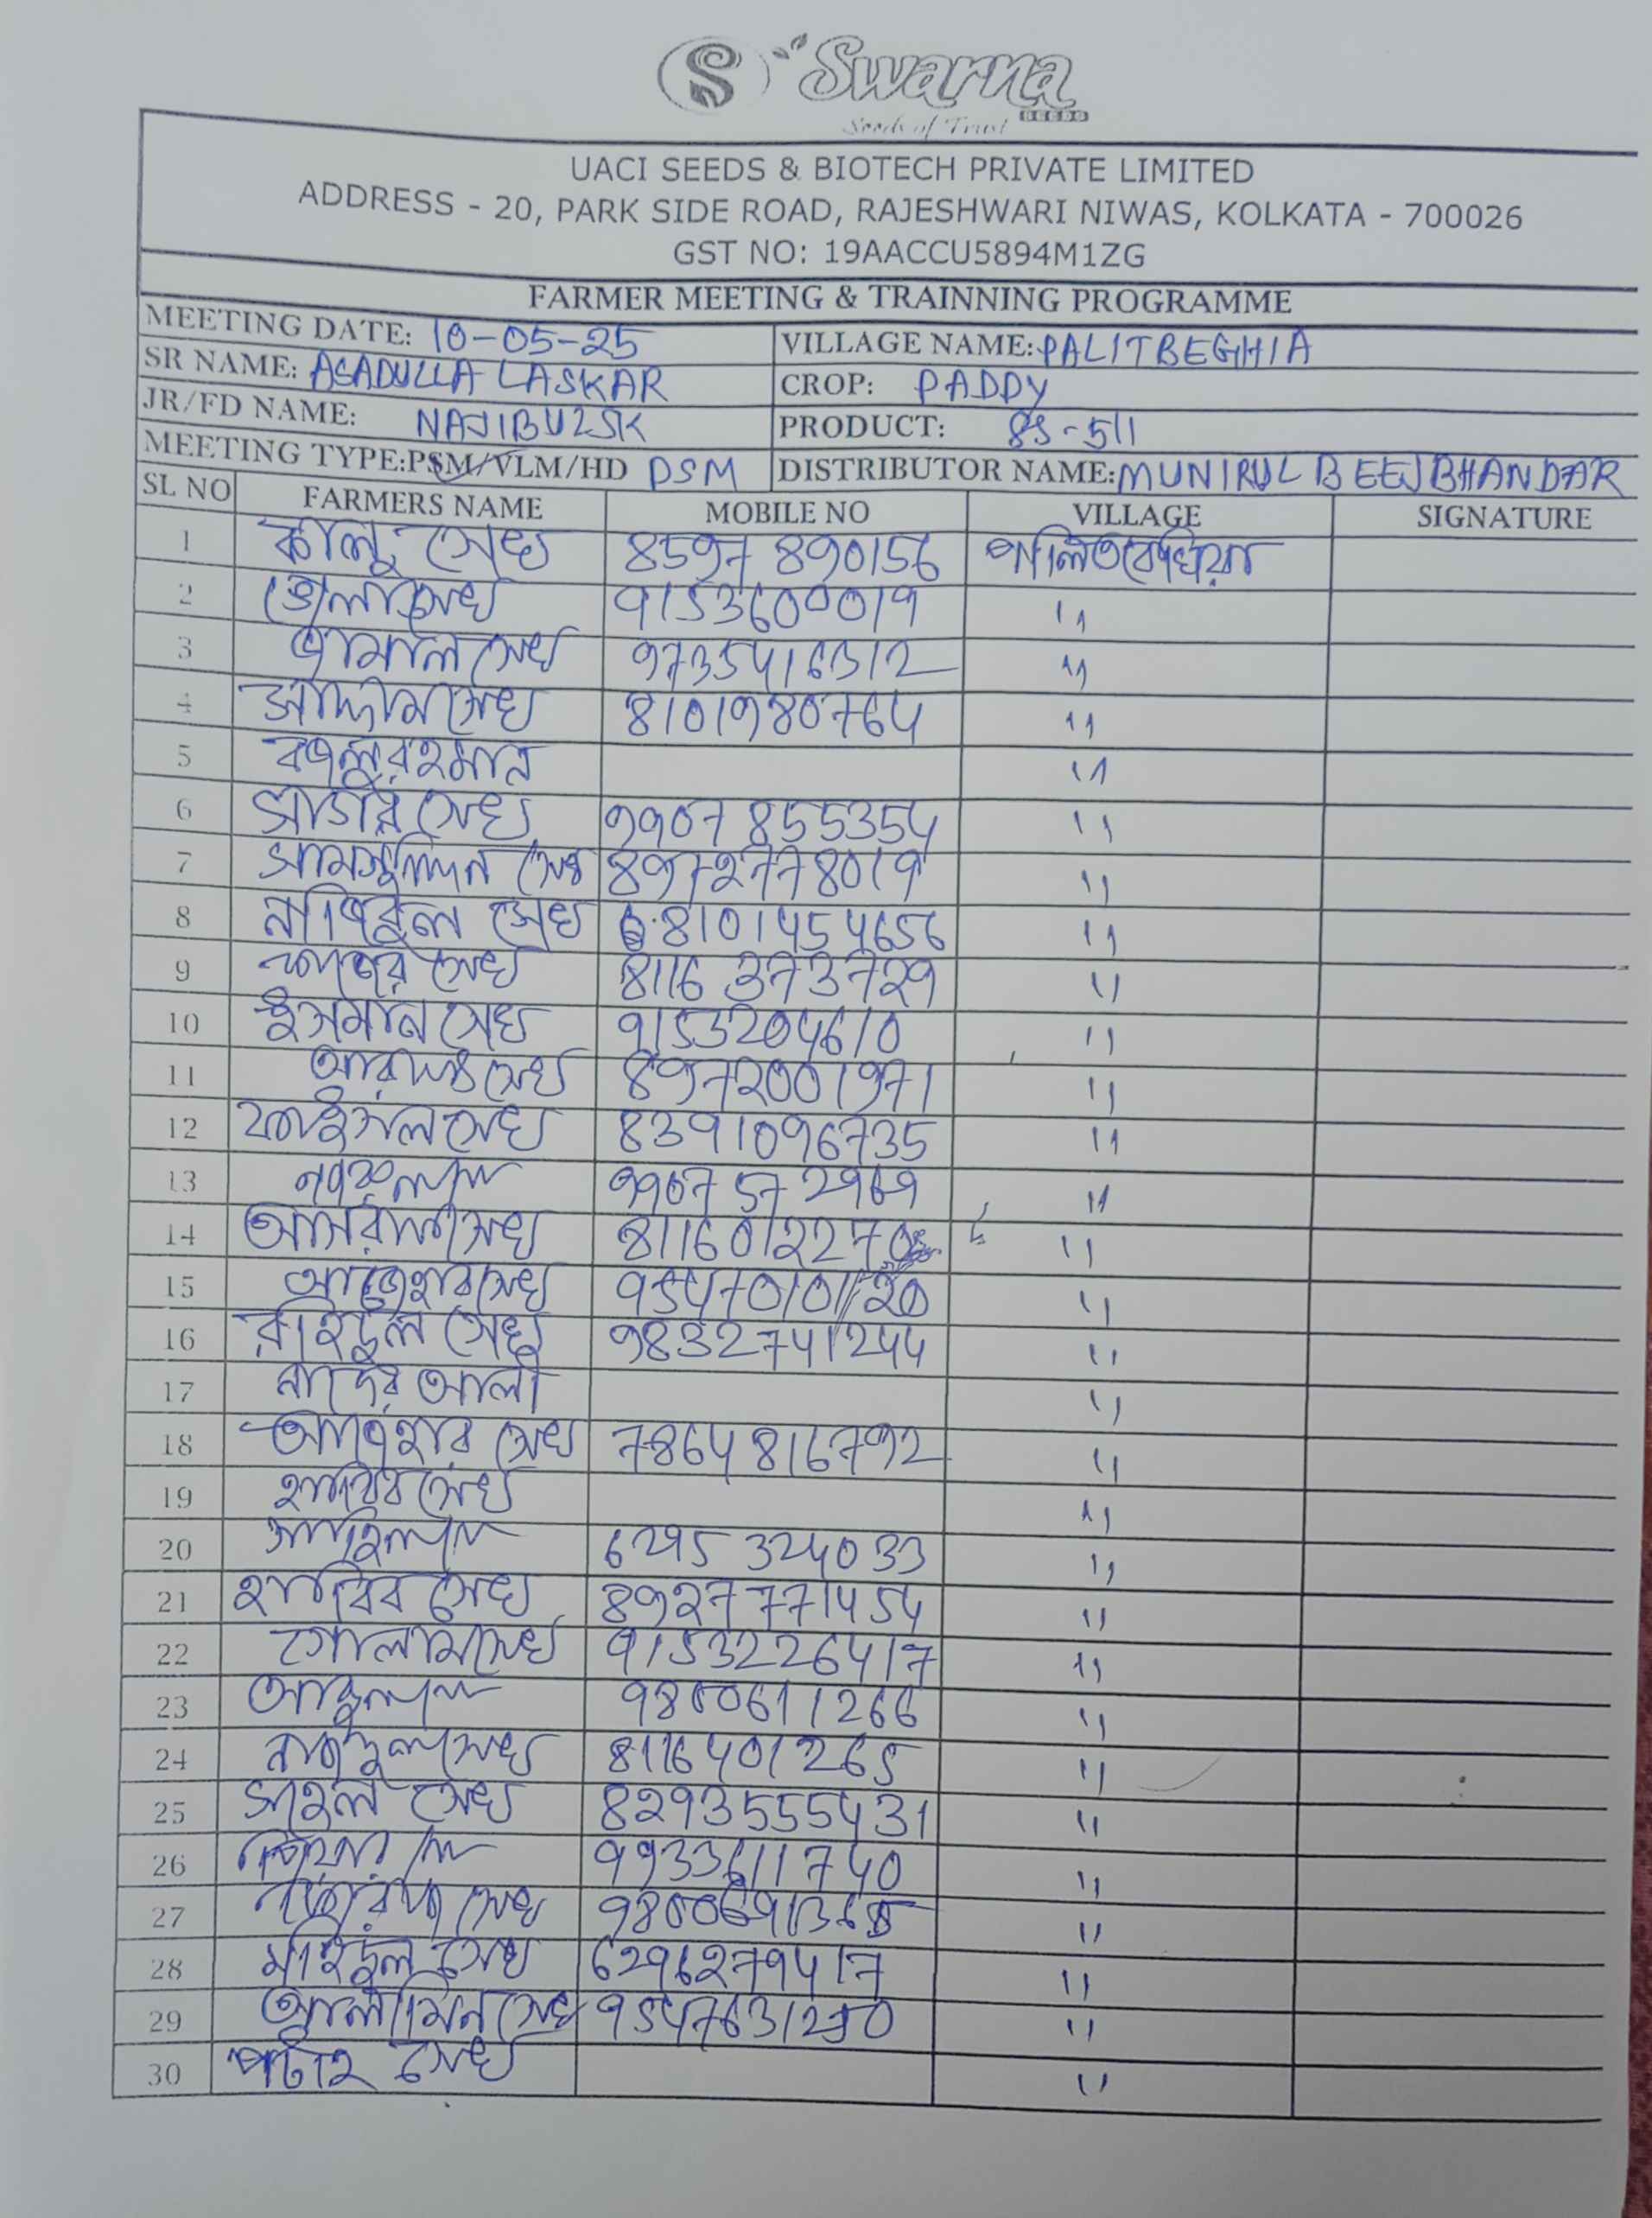 S Swarna
SEEDS
Seeds of Trust
UACI SEEDS & BIOTECH PRIVATE LIMITED
ADDRESS - 20, PARK SIDE ROAD, RAJESHWARI NIWAS, KOLKATA - 700026
GST NO: 19AACCU5894M1ZG
FARMER MEETING & TRAINNING PROGRAMME
MEETING DATE: 10-05-25 VILLAGE NAME: PALITBEGHIA
SR NAME: ASADULLA LASKAR CROP: PADDY
JR/FD NAME: NAJIBUL SK PRODUCT: 8S-511
MEETING TYPE:PSM/VLM/HD PSM DISTRIBUTOR NAME: MUNIRUL BEEJ BHANDAR
SL NO FARMERS NAME MOBILE NO VILLAGE SIGNATURE
1 কালু সেখ 8597 890156 পলিতবেঘিয়া
2 ভোলা সেখ 9153600019 11
3 জামাল সেখ 9735416312 11
4 সাদ্দাম সেখ 8101980764 11
5 বজলুর রহমান 11
6 সাগর সেখ 9907 855354 11
7 সামসুদ্দিন সেখ 8972778019 11
8 নাজিবুল সেখ 8101454656 11
9 সেখ 8116 373729 11
10 ইসমান সেখ 9153204610 11
11 সেখ 8972001971 11
12 ফাইসাল সেখ 8391096735 11
13 9907 57 2969 11
14 আসরাফ সেখ 8116012270 11
15 আজেহার সেখ 9547010120 11
16 রাহিদুল সেখ 9832741244 11
17 নাদের আলী 11
18 আজহার সেখ 7864816792 11
19 হাবিব সেখ 11
20 6295 324033 11
21 হাবিব সেখ 8927771454 11
22 গোলাম সেখ 9153226417 11
23 9800611266 11
24 নাজমুল সেখ 8116401265 11
25 সাহুল সেখ 8293555431 11
26 9933611740 11
27 সেখ 11
28 মাহিদুল সেখ 6296279417 11
29 আলামিন সেখ 9547631290 11
30 সেখ 11